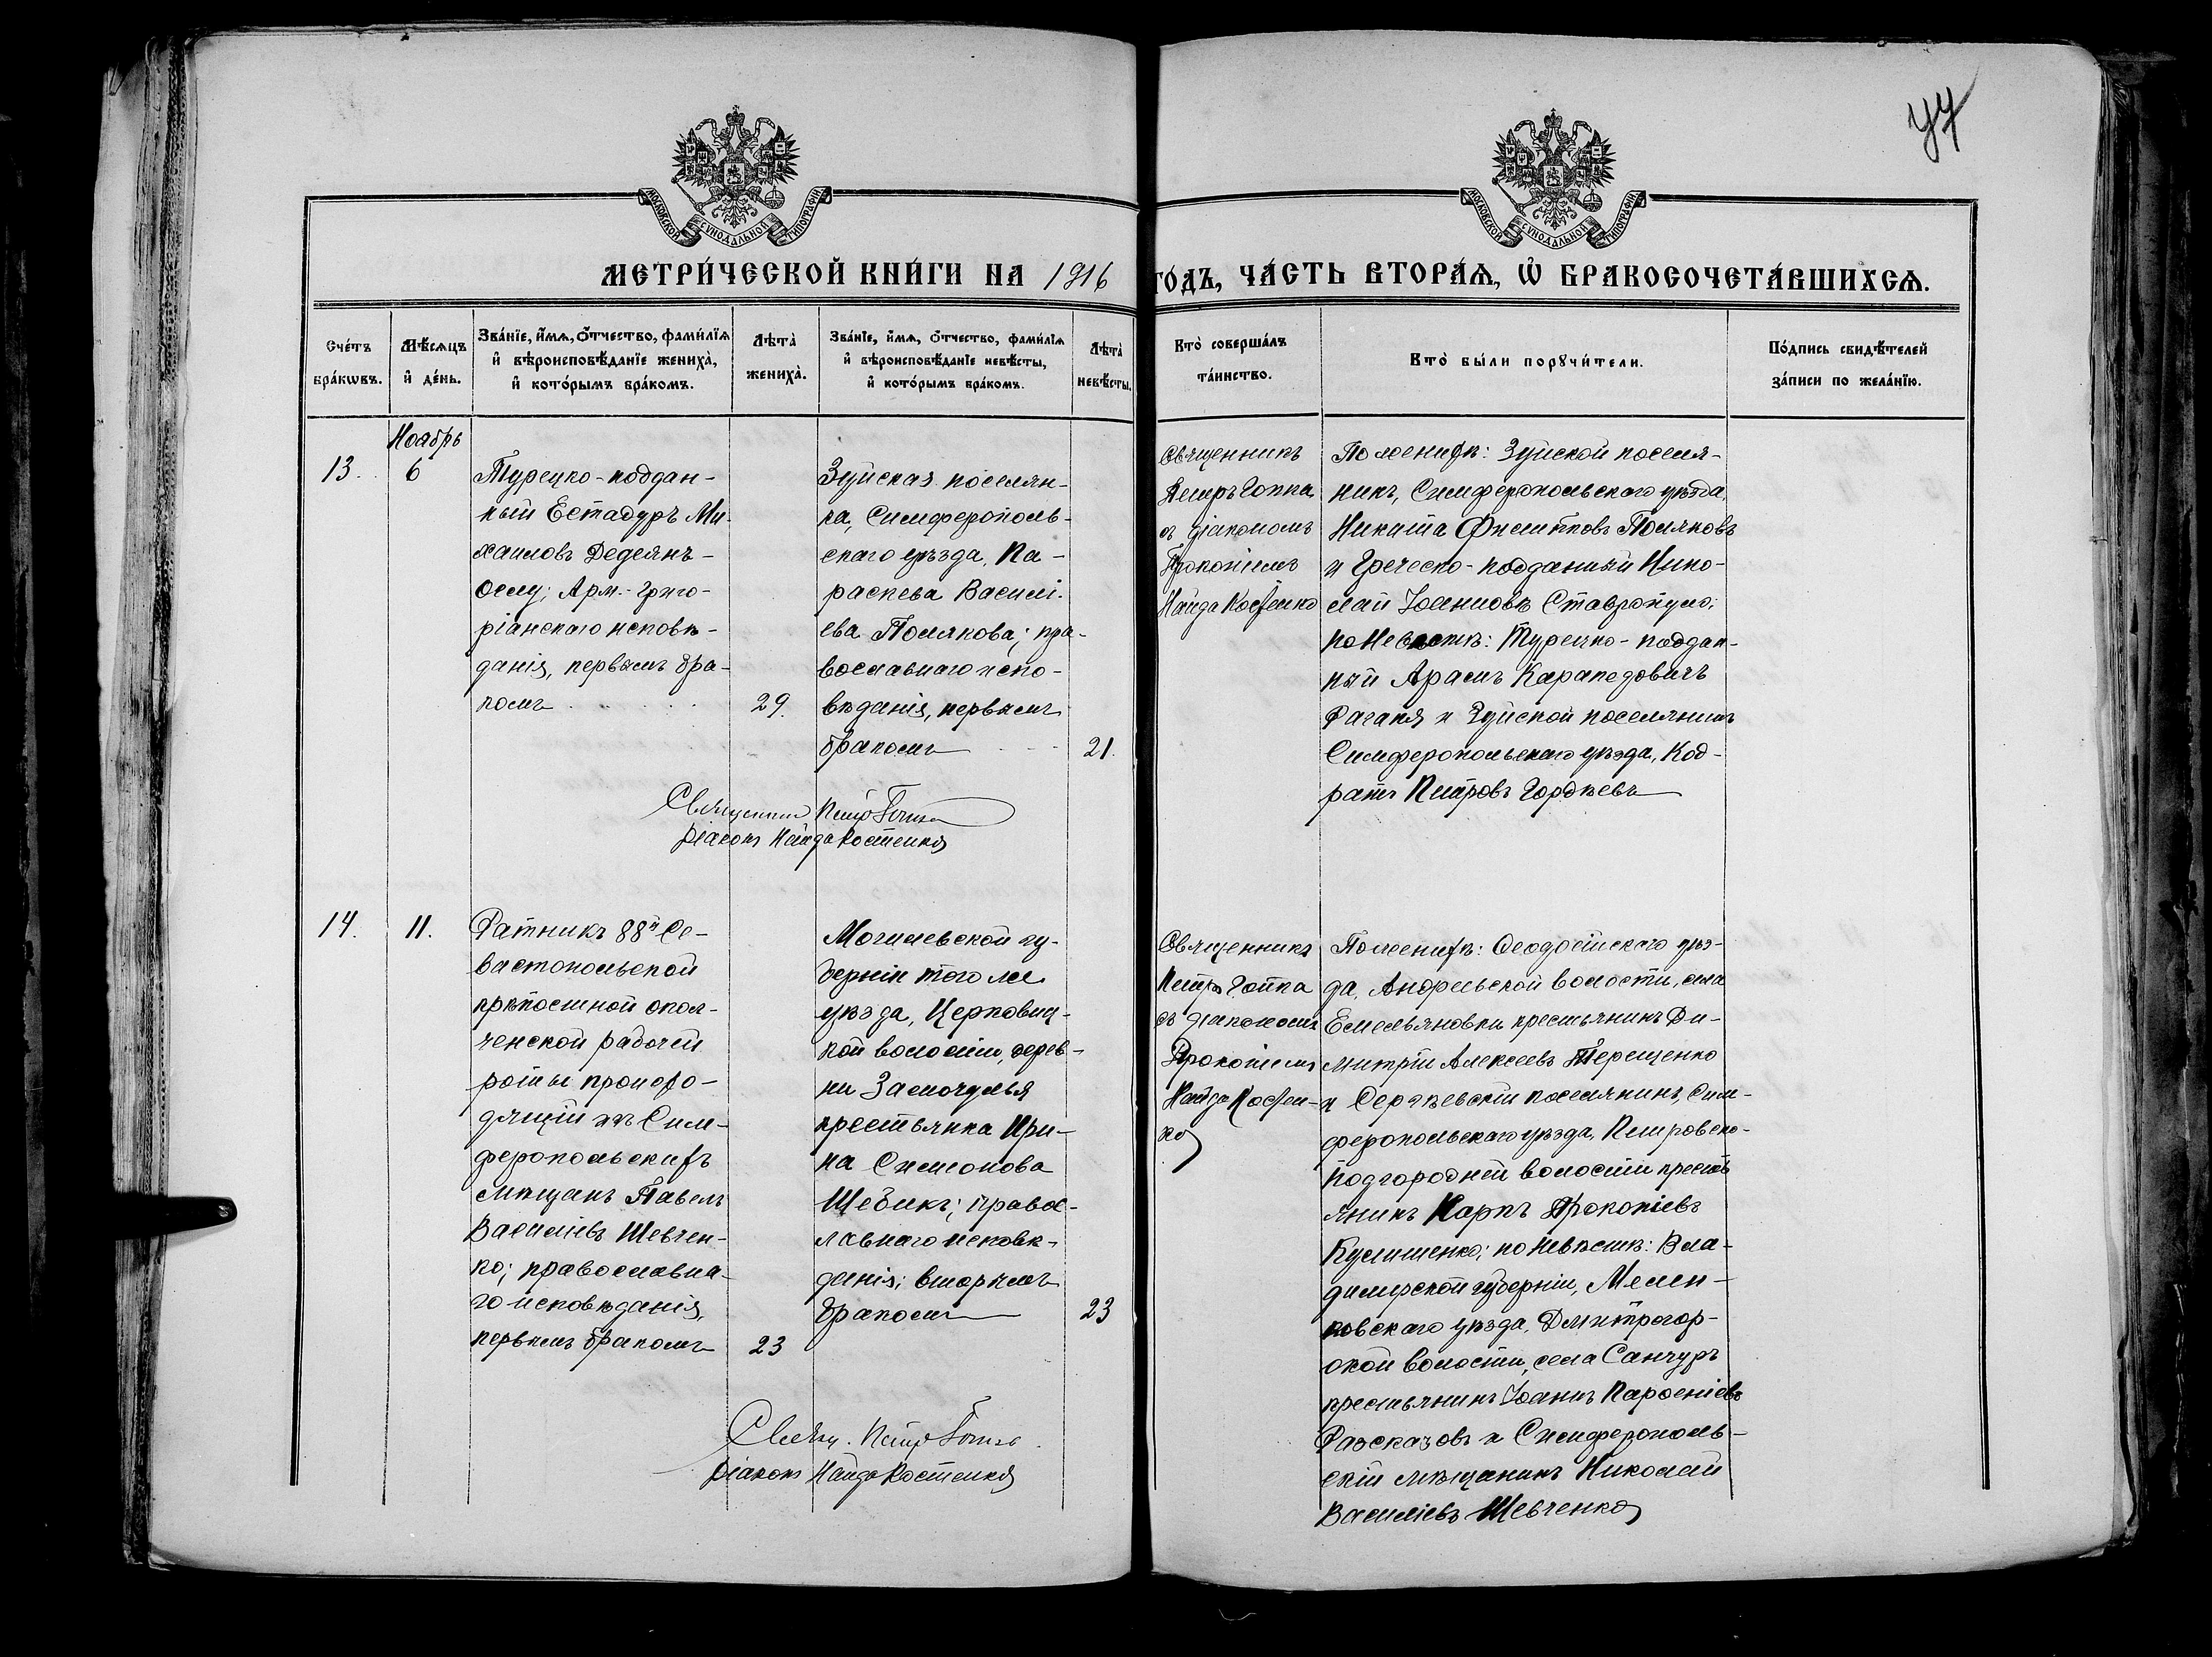 44
МОСКОВСКОЙ СѴНОДАЛЬНОЙ ТИПОГРАФІИ
МОСКОВСКОЙ СѴНОДАЛЬНОЙ ТИПОГРАФІИ
МЕТРИ́ЧЕСКОЙ КНИ́ГИ НА 1916
ГО́ДЪ, ЧА́СТЬ ВТОРА́Ѧ, Ѽ БРАКОСОЧЕТА́ВШИХСѦ.
Сче́тъ бра́кѡвъ.
Мѣ́сѧцъ и҆ де́нь.
Зва́нїе, и҆́мѧ, ѻ҆́тчество, фами́лїѧ и҆ вѣроисповѣ́данїе жениха̀, и҆ кото́рымъ бра́комъ.
Лѣта̀ жениха̀.
Зва́нїе, и҆́мѧ, ѻ҆́тчество, фами́лїѧ и҆ вѣроисповѣ́данїе невѣ́сты, и҆ кото́рымъ бра́комъ.
Лѣта̀ невѣ́сты.
Кто̀ соверша́лъ та́инство.
Кто̀ бы́ли порꙋчи́тели.
По́дпись свидѣ́телей за́писи по жела́нїю.
Ноябрь
13.
6
Турецко-поддан-
ный Естадуръ Ми-
хаиловъ Дедеянъ-
Оглу; Арм.-Григо-
ріанскаго исповѣ-
данія, первымъ бра-
комъ
29.
Зуйская поселян-
ка, Симферополь-
скаго уѣзда, Па-
раскева Василі-
ева Полякова; пра-
вославнаго испо-
вѣданія, первымъ
бракомъ
21.
Священникъ
Петръ Гопка
съ діакономъ
Прокопіемъ
Найда Костенко
По женихѣ: Зуйской поселя-
нинъ, Симферопольскаго уѣзда,
Никита Филипповъ Поляковъ
и Греческо-подданный Нико-
лай Іоанновъ Ставропуло;
по Невѣстѣ: Турецко-поддан-
ный Арамъ Карапедовичъ
и Зуйской поселянинъ
Симферопольскаго уѣзда, Код-
ратъ Петровъ Гордѣевъ
Священникъ Петръ Гопка
Діаконъ Найда Костенко
14.
11.
Ратникъ 88й Се-
вастопольской
крѣпостной опол-
ченской рабочей
роты происхо-
дящій изъ Сим-
феропольскихъ
мѣщанъ Павелъ
Василіевъ Шевчен-
ко; православна-
го исповѣданія,
первымъ бракомъ
23
Могилевской гу-
берніи того же
уѣзда, Церковищ-
кой волости, дерев-
ни
крестьянка Ири-
на Симонова
Шебикъ; правос-
лавнаго исповѣ-
данія; вторымъ
бракомъ
23
Священникъ
Петръ Гопка
съ діакономъ
Прокопіемъ
Найда Костен-
ко
По женихѣ: Ѳеодосійскаго уѣз-
да, Андреевской волости, села
Емельяновки крестьянинъ Ди-
митрій Алексеевъ Терещенко
и поселянинъ, Сим-
феропольскаго уѣзда, Петровско-
подгородней волости кресть-
янинъ Карпъ Прокопіевъ
Кулишенко; по невѣстѣ: Вла-
димірской губерніи, Мелен-
ковскаго уѣзда, Дмитрогор-
ской волости, села Санчуръ
крестьянинъ Іоаннъ Парѳеніевъ
Разсказовъ и Симферополь-
скій мѣщанинъ Николай
Василіевъ Шевченко
Свящ. Петръ Гопка.
Діаконъ Найда Костенко